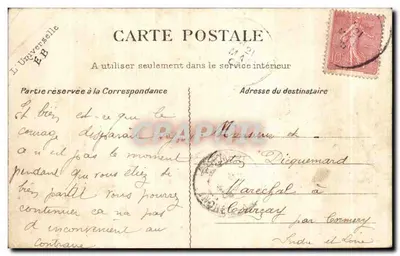 L'Universelle
E B
CARTE POSTALE
A utiliser seulement dans le service intérieur
Partie réservée à la Correspondance
Adresse du destinataire
Et bien est-ce que le
courage
a-t-il pas le moment
pendant que vous êtes de
bien partit Vous pouvez
continuer ca ne pas
d'inconvenient au
contraire
Monsieur et
Dicquemard
Marechal à
Courçay
par Cormery
Indre et Loire